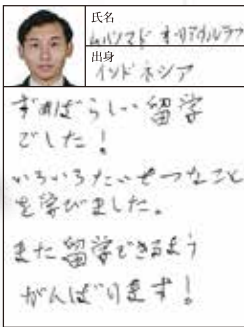 氏名
ムハンマド
出身
インドネシア
すばらしい留学
でした!
いろいろたいせつなこと
を学びました。
また留学できるよう
がんばります!